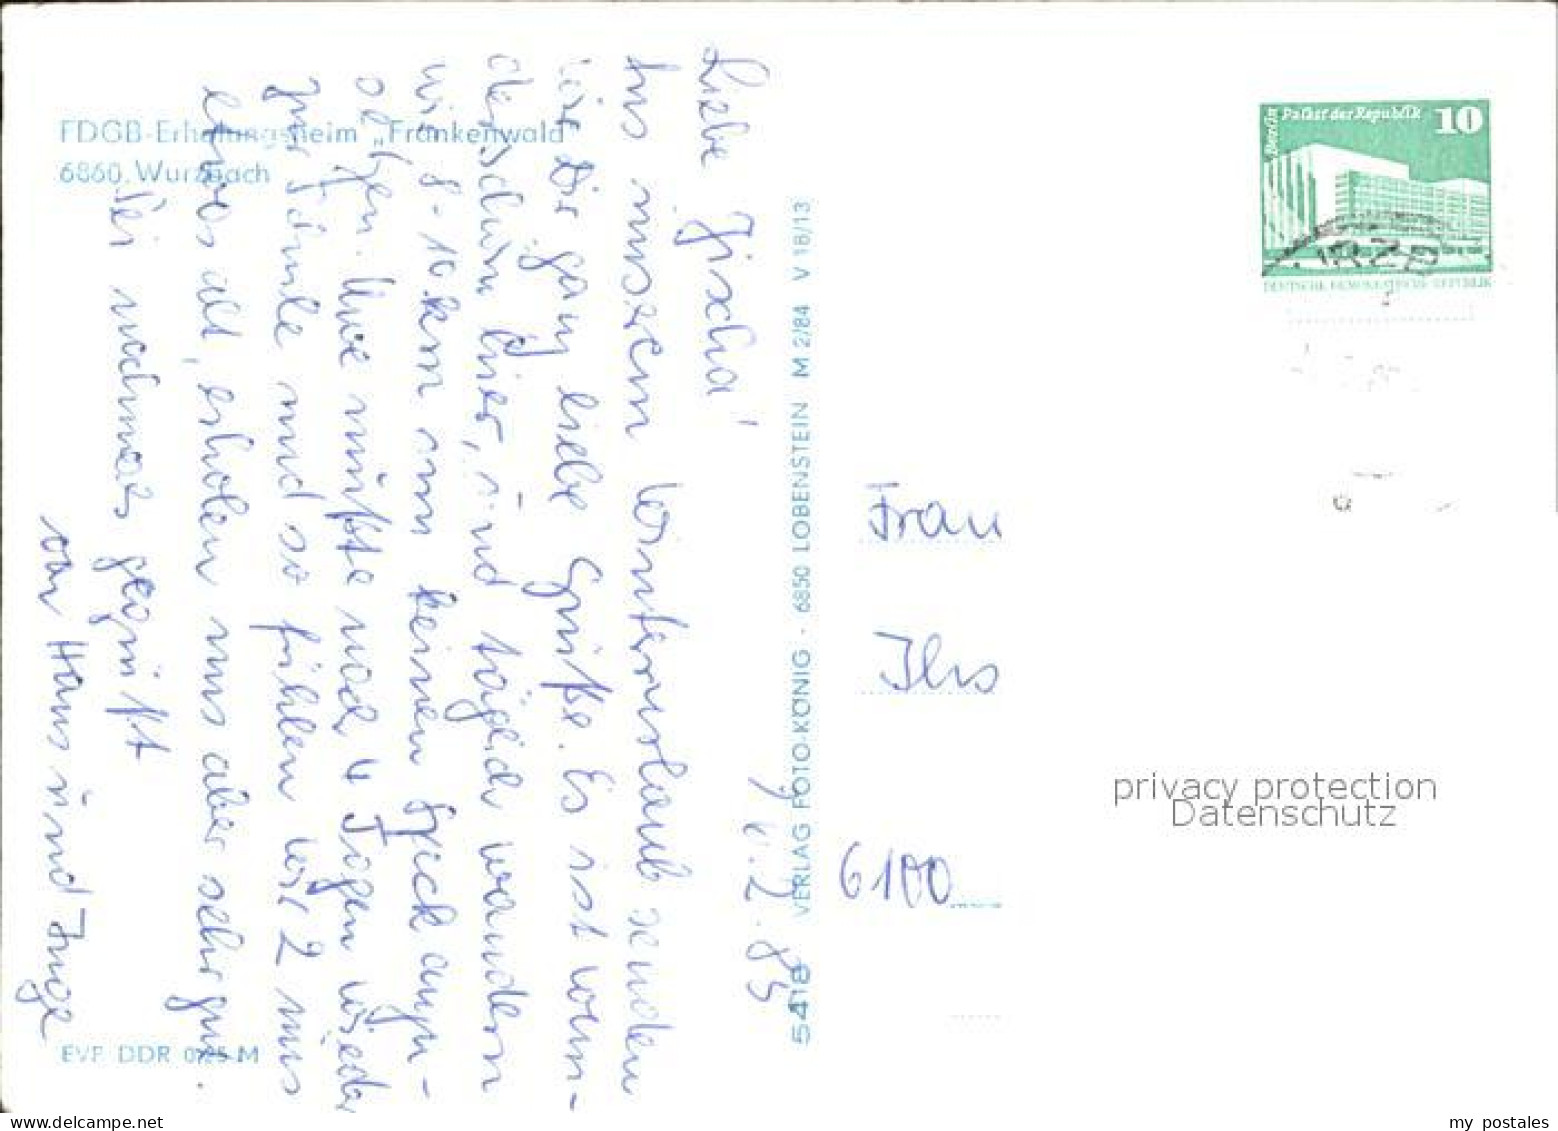 FDGB-Erholungsheim „Frankenwald"
6860 Wurzbach
W. 2. 85
Liebe Zischa!
Aus unserem Winterurlaub senden
wir Dir ganz liebe Grüße. Es ist wun-
derschön hier, und täglich wandern
wir 8-10 km um keinen Speck anzu-
setzen. Uwe mußte nach 4 Tagen wieder
zur Schule und so fühlen wir 2 uns
etwas alt, erholen uns aber sehr gut.
Sei nochmals gegrüßt
von Hans und Inge
EVP DDR 0,25 M
5418 VERLAG FOTO-KÖNIG · 6850 LOBENSTEIN M 2/84 V 18/13
Berlin
Palast der Republik 10
DEUTSCHE DEMOKRATISCHE REPUBLIK
Frau
Ils
6100
privacy protection
Datenschutz
my postales